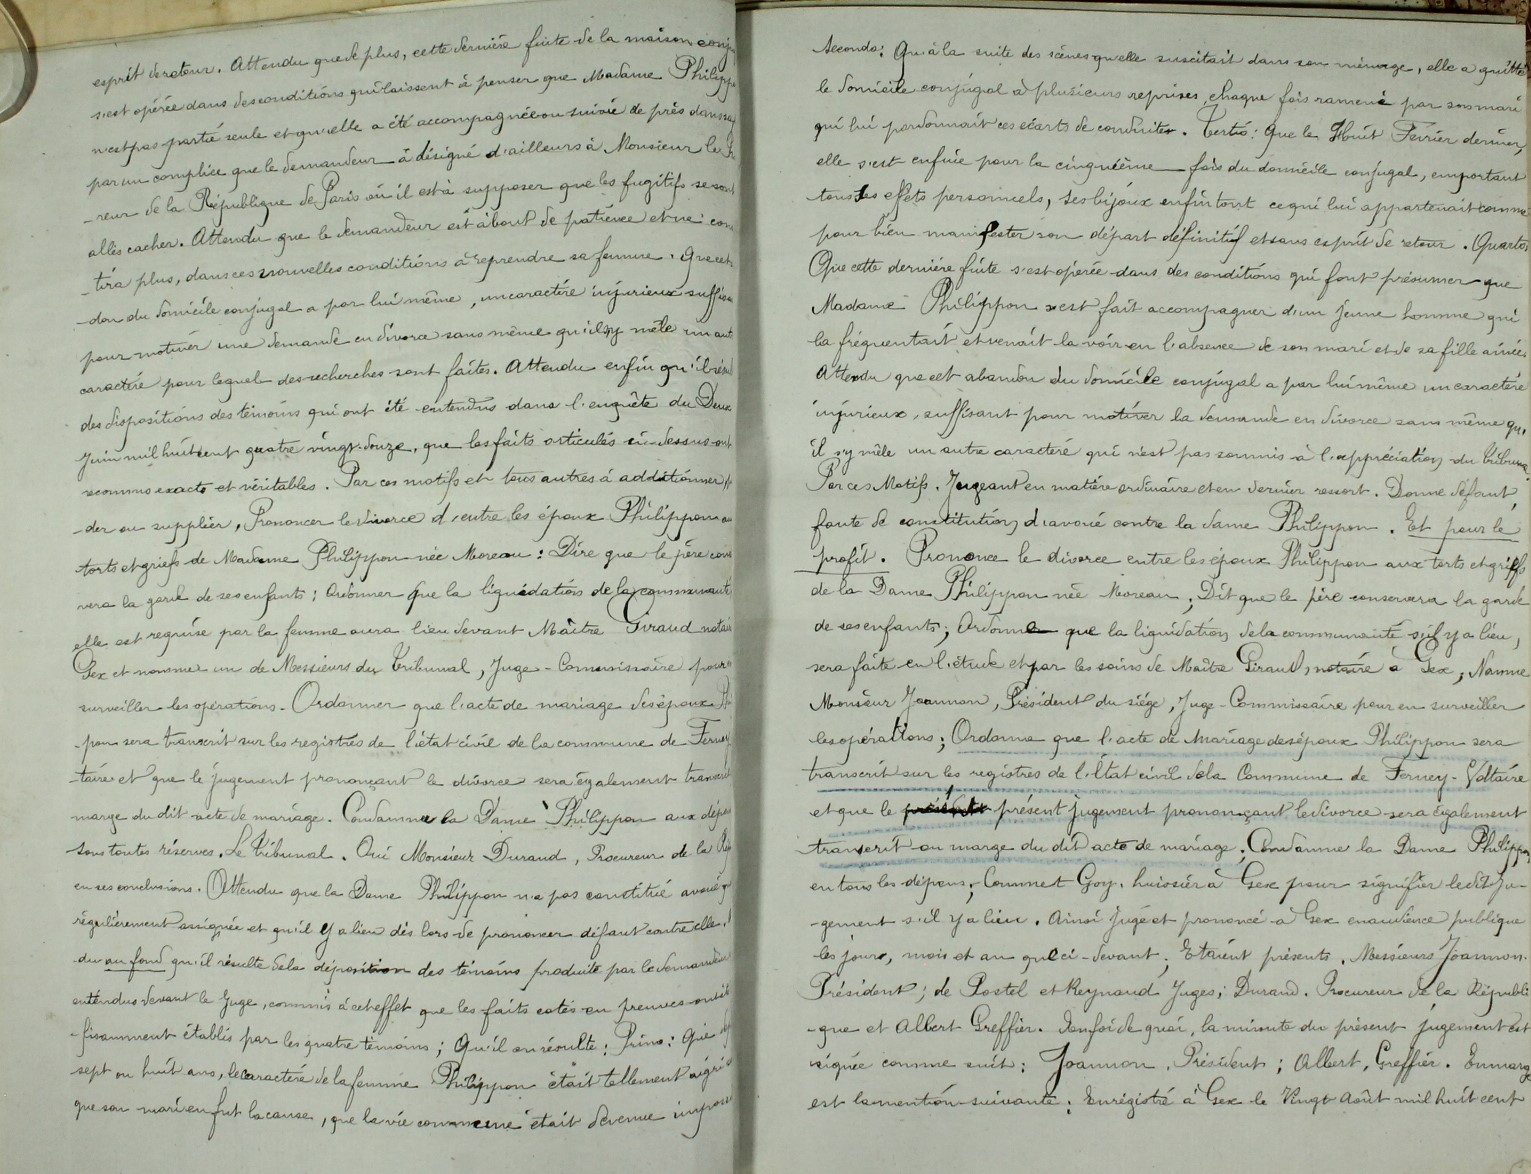 esprit de retour. Attendu que de plus, cette dernière fuite de la maison conj
s'est opérée dans des conditions qui laissent à penser que Madame Philippo
n'est pas partie seule et qu'elle a été accompagnée ou suivie de près dans sa
par un complice que le demandeur à désigné d'ailleurs à Monsieur le Pr
-reur de la République de Paris où il est à supposer que les fugitifs se sont
allés cacher. Attendu que le demandeur est à bout de patience et ne con
-tira plus, dans ces nouvelles conditions à reprendre sa femme. Que cet
-don du domicile conjugal a par lui même, un caractère injurieux suffisa
pour motiver une demande en divorce sans même qu'il s'y mêle un aut
caractère pour lequel des recherches sont faites. Attendu enfin qu'il résul
des dispositions des témoins qui ont été entendus dans l'enquête du Deux
Juin mil huit cent quatre vingt-douze, que les faits articulés ci-dessus ont
reconnus exacts et véritables. Par ces motifs et tous autres à additionner,
-der ou supplier, Prononcer le divorce d'entre les époux Philippon au
torts et griefs de Madame Philippon née Moreau: Dire que le père con
vera la garde de ses enfants; Ordonner que la liquidation de la communauté
elle est requise par la femme aura lieu devant Maître Giraud notai
Gex et nommer un de Messieurs du Tribunal, Juge-Commissaire pour
surveiller les opérations. Ordonner que l'acte de mariage des époux Ph
pon sera transcrit sur les registres de l'état civil de la commune de Ferney
taire et que le jugement prononçant le divorce sera également transcrit
marge du dit acte de mariage. Condamner la Dame Philippon aux dépen
sous toutes réserves. Le Tribunal. Oui Monsieur Durand, Procureur de la Ré
en ses conclusions. Attendu que la Dame Philippon n'a pas constitué avoué q
régulièrement assignée et qu'il y a lieu dès lors de prononcer défaut contre elle.
du au fond qu'il résulte de la déposition des témoins produits par le demandeur
entendus devant le Juge, commis à cet effet que les faits cotés en preuves ont été
-fisamment établis par les quatre témoins; Qu'il en résulte: Primo: Que
sept ou huit ans, le caractère de la femme Philippon était tellement aigri
que son mari en fut la cause, que la vie commune était devenue imposs
Secondo: Qu'à la suite des scènes qu'elle suscitait dans son ménage, elle a quitté
le domicile conjugal à plusieurs reprises, chaque fois ramené par son mari
qui lui pardonnait ces écarts de conduite. Tertio: Que le Huit Février dernier,
elle s'est enfuie pour la cinquième fois du domicile conjugal, emportant
tous ses effets personnels, ses bijoux enfin tout ce qui lui appartenait comme
pour bien manifester son départ définitif et sans esprit de retour. Quarto
Que cette dernière fuite s'est opérée dans des conditions qui font présumer que
Madame Philippon s'est fait accompagner d'un jeune homme qui
la fréquentait et venait la voir en l'absence de son mari et de sa fille aînée.
Attendu que cet abandon du domicile conjugal a par lui même un caractère
injurieux, suffisant pour motiver la demande en divorce sans même qu'
il s'y mêle un autre caractère qui n'est pas soumis à l'appréciation du tribunal
Par ces Motifs. Jugeant en matière ordinaire et en dernier ressort. Donne défaut
faute de constitution d'avoué contre la dame Philippon. Et pour le
profit. Prononce le divorce entre les époux Philippon aux torts et griefs
de la Dame Philippon née Moreau; Dit que le père conservera la garde
de ses enfants; Ordonne que la liquidation de la communauté s'il y a lieu,
sera faite en l'étude et par les soins de Maître Giraud, notaire à Gex; Nomme
Monsieur Joannon, Président du siège, Juge-Commissaire pour en surveiller
les opérations; Ordonne que l'acte de Mariage des époux Philippon sera
transcrit sur les registres de l'État civil de la Commune de Ferney-Voltaire
et que le présent jugement prononçant le divorce sera également
transcrit en marge du dit acte de mariage; Condamne la Dame Philippon
en tous les dépens; Commet Goy, huissier à Gex pour signifier le dit ju-
-gement s'il y a lieu. Ainsi jugé et prononcé à Gex en audience publique
les jours, mois et an que ci-devant; Etaient présents, Messieurs Joannon.
Président; de Postel et Reynaud Juges; Durand. Procureur de la Républi
-que et Albert Greffier. En foi de quoi, la minute du présent jugement est
signée comme suit: Joannon, Président; Albert, Greffier. En marge
est la mention suivante: Enrégistré à Gex le Vingt Août mil huit cent